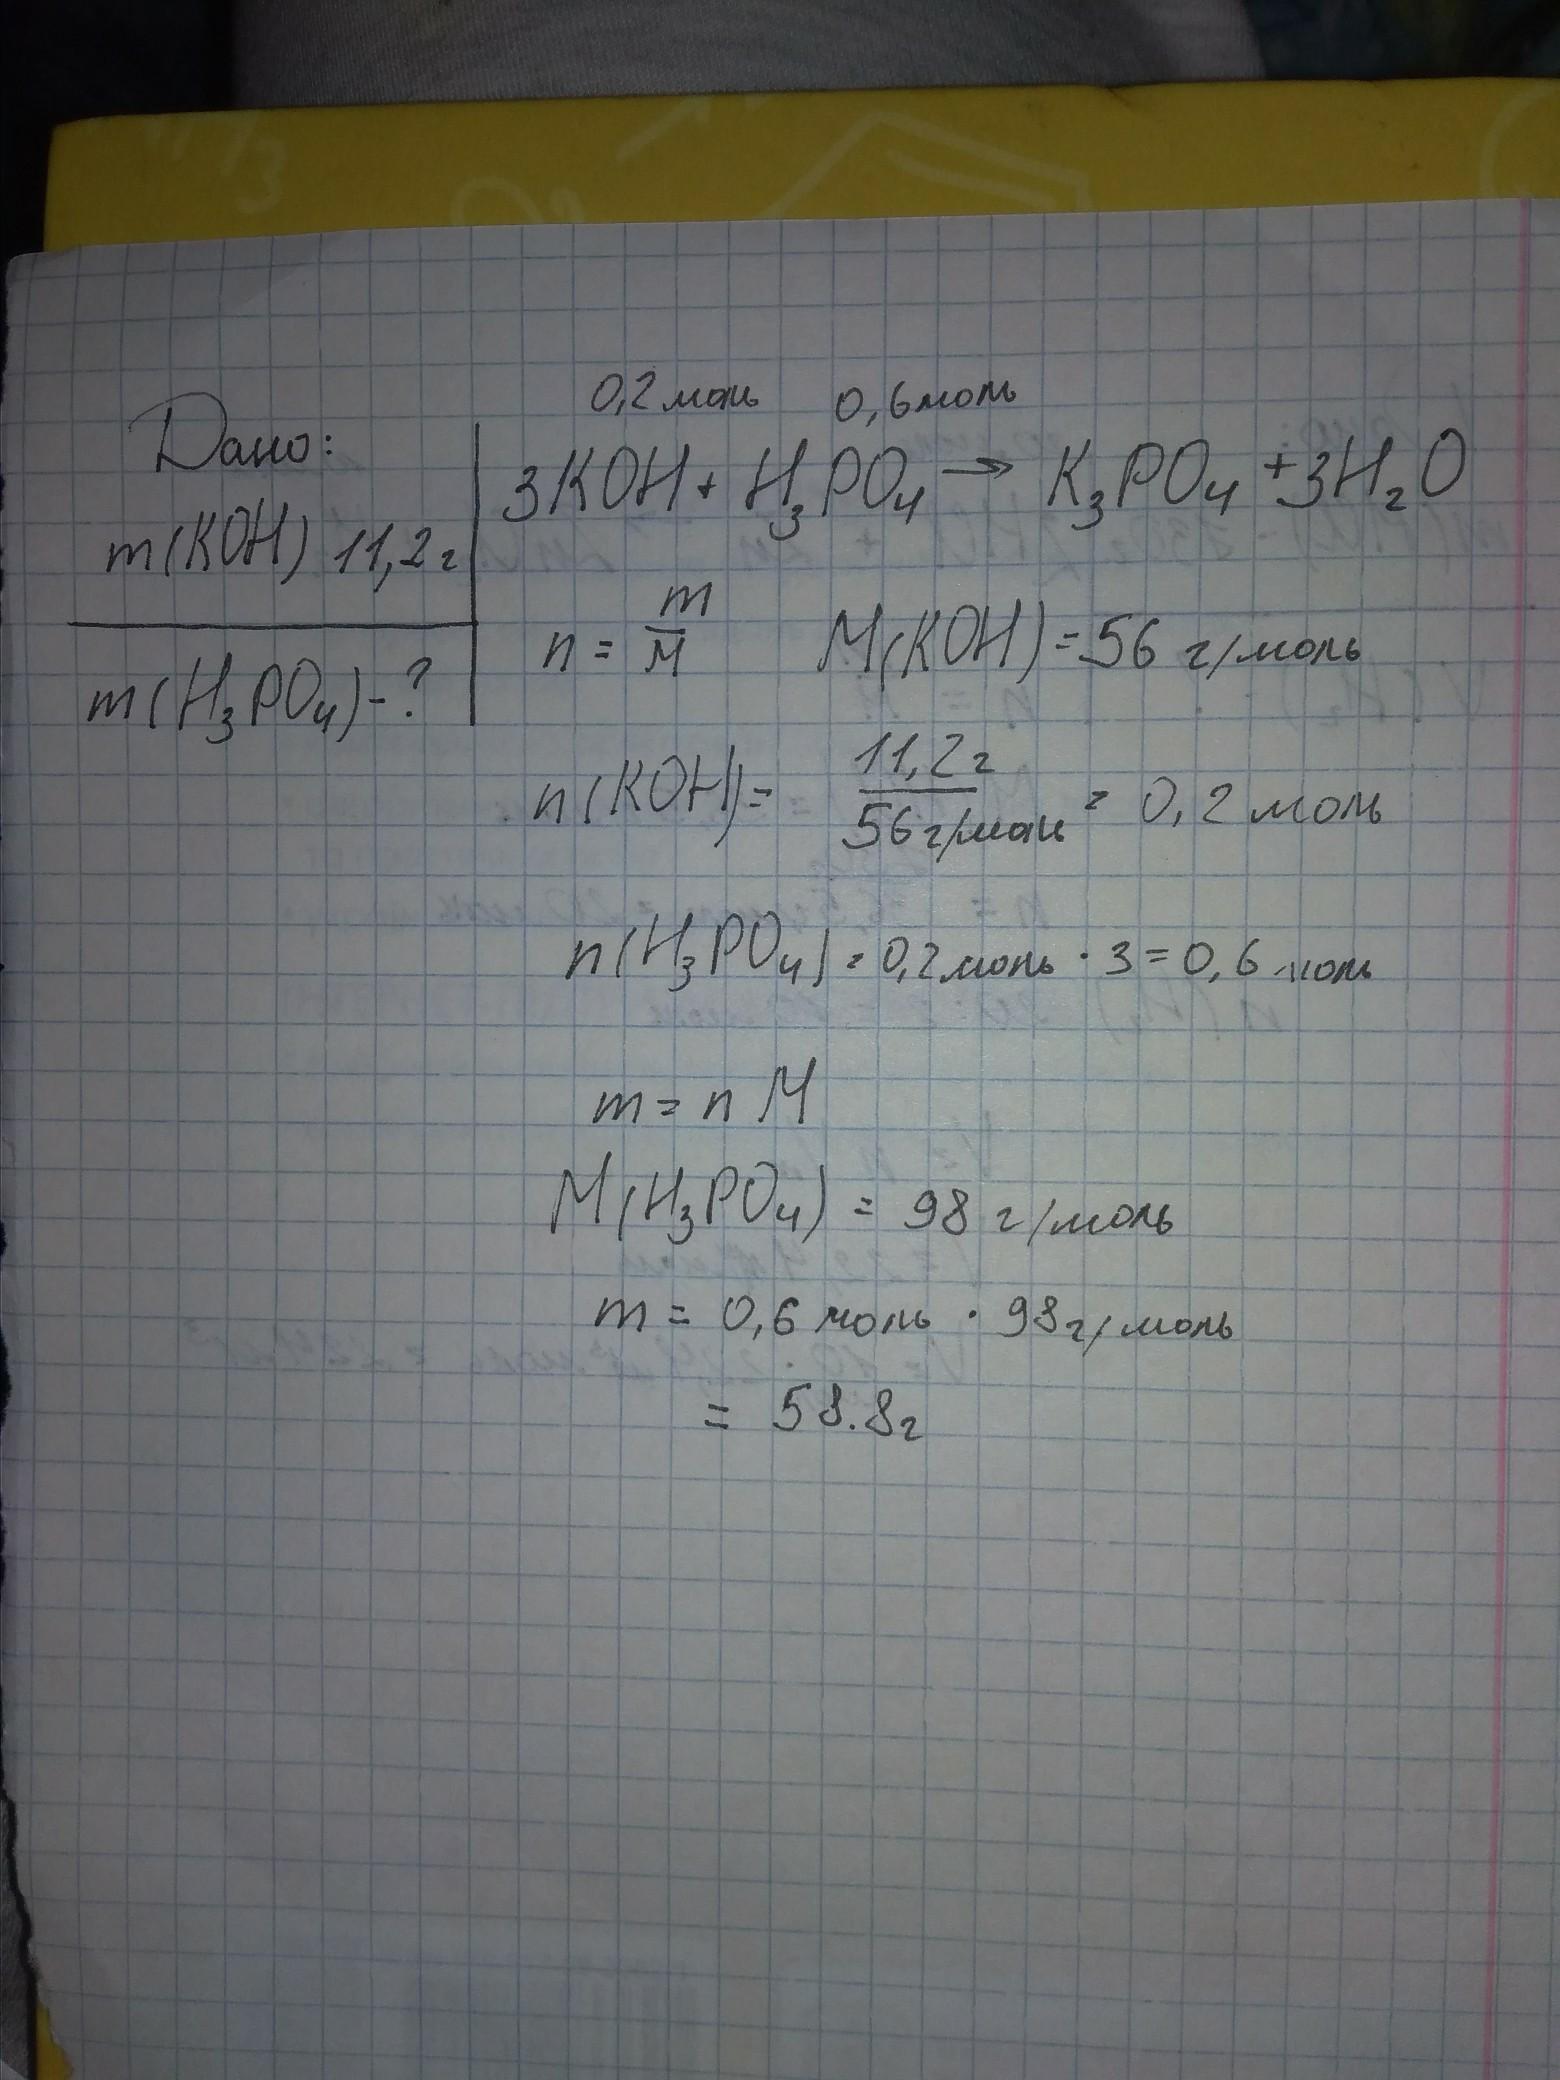 Дано:
m(KOH) 11,2г
m(H₃PO₄)-?
0,2 моль 0,6 моль
3KOH + H₃PO₄ → K₃PO₄ + 3H₂O
n = m/M M(KOH) = 56 г/моль
n(KOH) = 11,2г / 56 г/моль = 0,2 моль
n(H₃PO₄) = 0,2 моль · 3 = 0,6 моль
m = n M
M(H₃PO₄) = 98 г/моль
m = 0,6 моль · 98 г/моль
= 58.8г